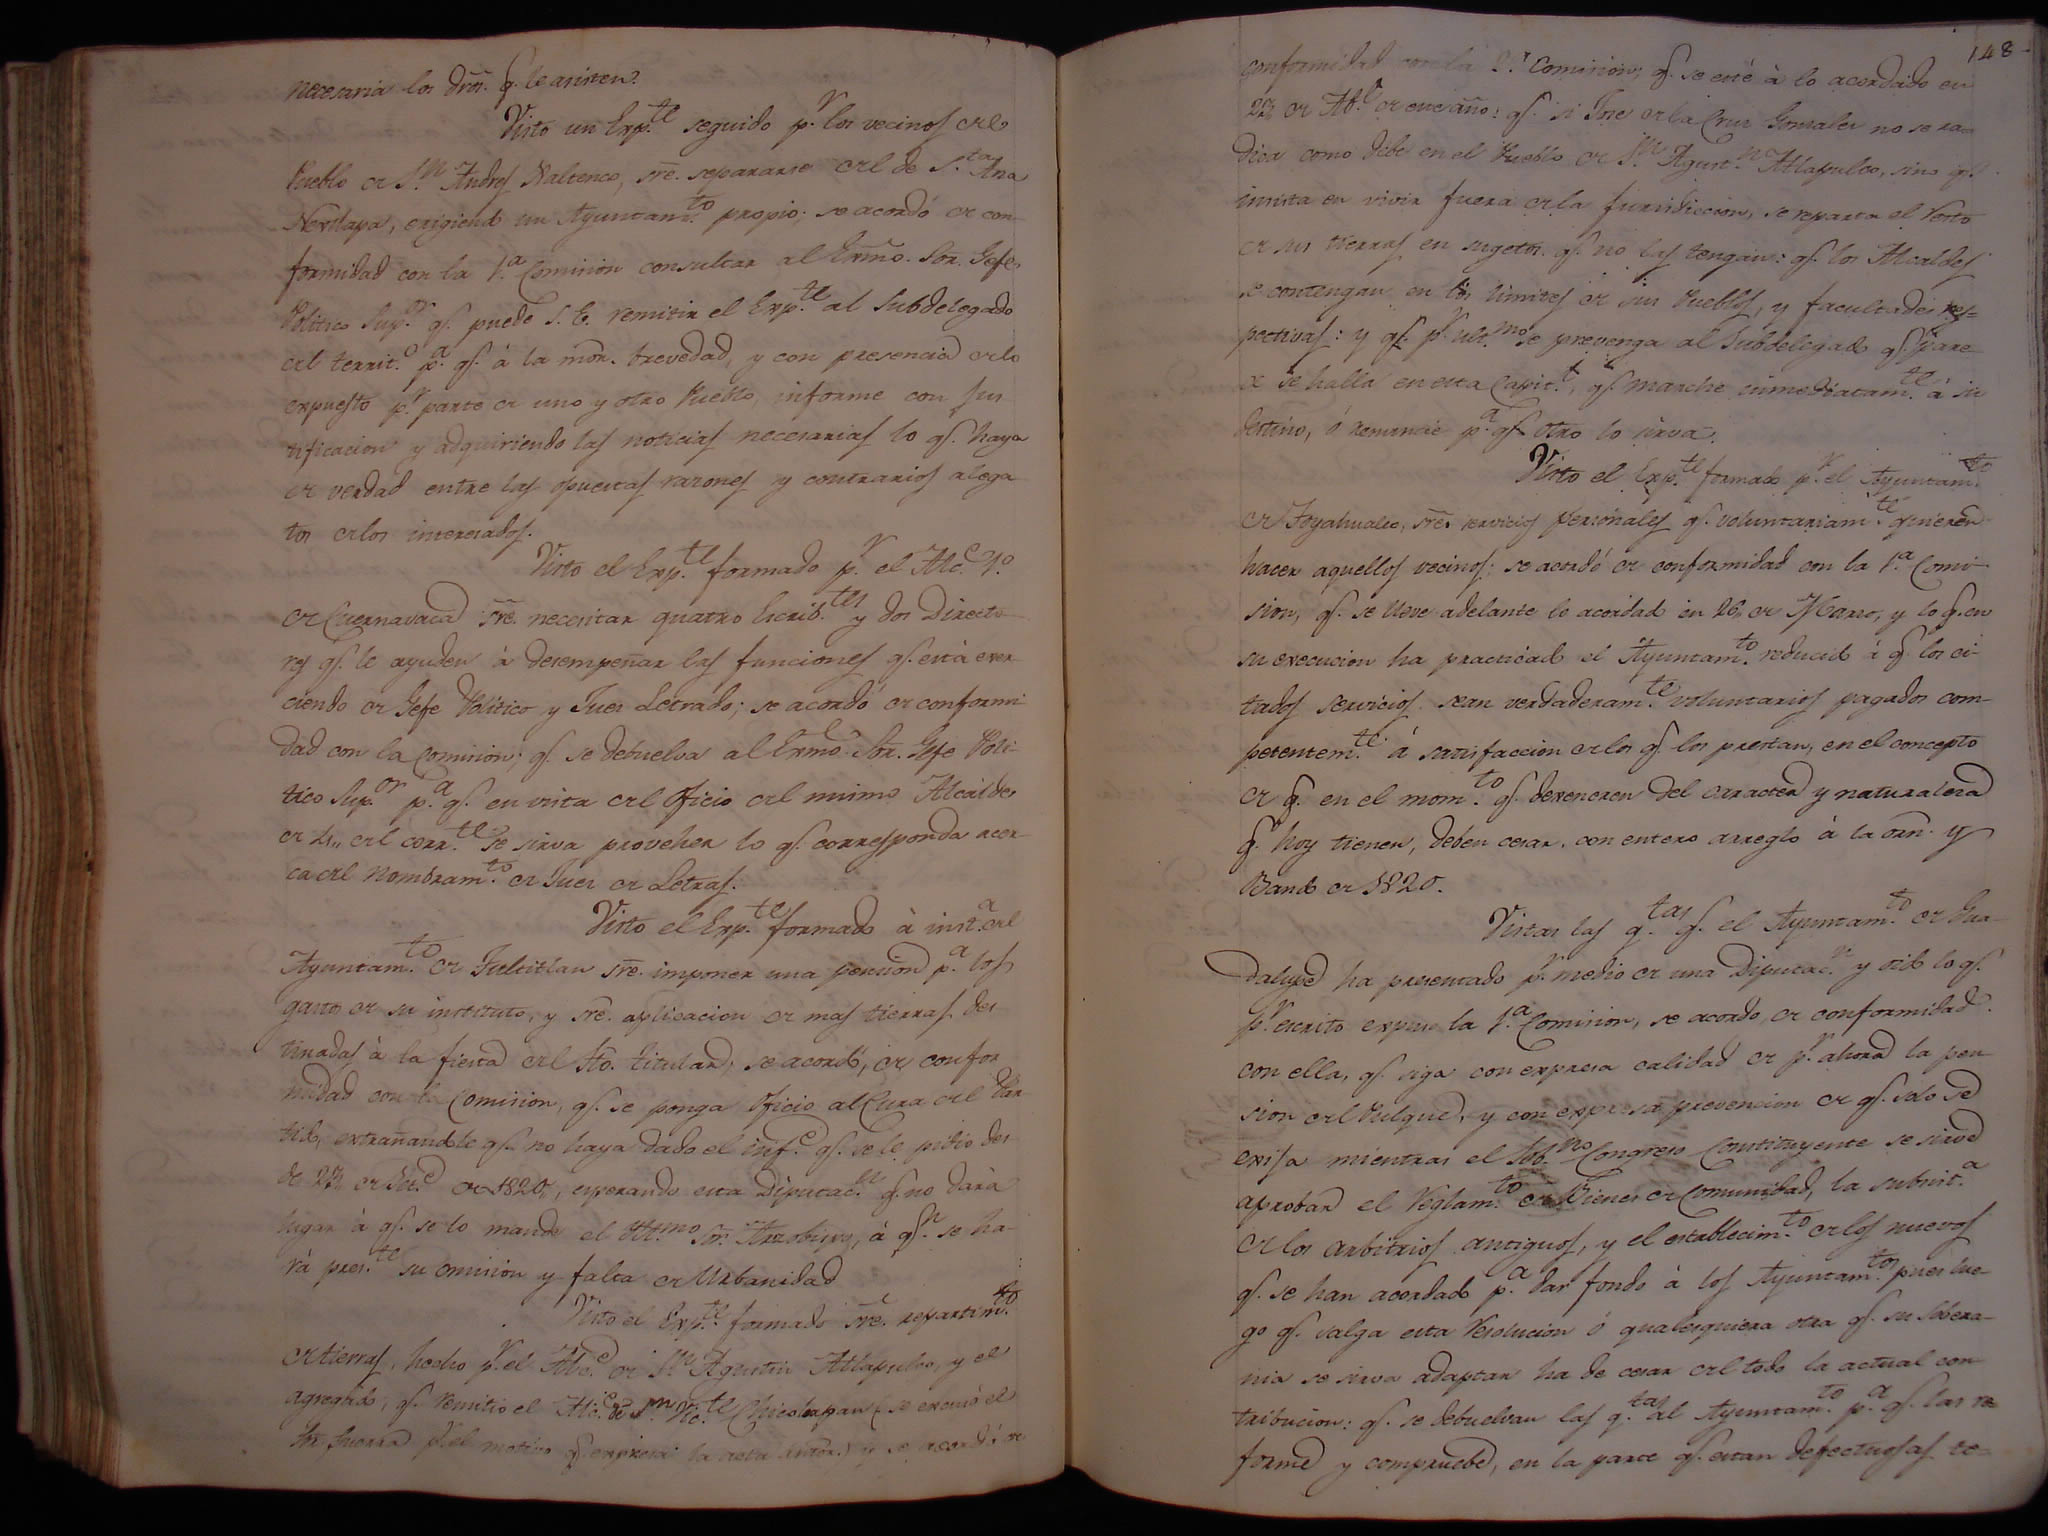 necesaria los drõs. q. le asisten.
Visto un Exp.te seguido p.r los vecinos del
Pueblo de S.n Andres Xaltenco, sre. separarse del de S.ta Ana
Nextlapa, erigiendo un Ayuntam.to propio; se acordó de con-
formidad con la 1.a Comision consultar al Exmo. Sor. Gefe
Politico Sup.or q. puede S. E. remitir el Exp.te al Subdelegado
del territ.o p.a q. á la mõr. brevedad, y con presencia de lo
expuesto p.r parte de uno y otro Pueblo, informe con jus
tificacion y adquiriendo las noticias necesarias lo q. haya
de verdad entre las opuestas razones y contrarios alega
tos de los interesados.
Visto el Exp.te formado p.r el Alc.e 1.o
de Cuernavaca sre. necesitar quatro Escrib.tes y dos Directo
res q. le ayuden á desempeñar las funciones q. está exer
ciendo de Gefe Politico y Juez Letrado; se acordó de conformi
dad con la Comision; q. se debuelva al Exmo. Sor. Gefe Poli-
tico Sup.or p.a q. en vista del Oficio del mismo Alcalde
de 4,, del corr.te se sirva proveher lo q. corresponda acer-
ca del Nombram.to de Juez de Letras.
Visto el Exp.te formado à inst.a del
Ayuntam.to de Jultitlan sre. imponer una pension p.a los
gastos de su instituto, y sre. aplicacion de mas tierras des
tinadas à la fiesta del Sto. titular; se acordó, de confor
midad con la Comision, q. se ponga Oficio al Cura del Par
tido, extrañandole q. no haya dado el inf.e q. se le pidio des
de 27, de Dic.e de 1820,, esperando esta Diputac.n q. no dará
lugar à q. se lo mande el Ill.mo Sr. Arzobispo, á q.n se ha-
rá pres.te su omision y falta de Urbanidad
Visto el Exp.te formado sre. repartim.to
de tierras, hecho p.r el Alc.e de S.n Agustin Atlapulco, y el
agregado, q. remitio el Alc.e de S.n Vic.te Chicoloapan (se excusó el
Sr. Guerra p.r el motivo q. expresa la acta anter.) y se acordó de
148
conformidad con la 1.a Comision; q. se esté à lo acordado en
27, de Ab.l de este año: q. si Jose de la Cruz Gonzalez no se ra-
dica como debe en el Pueblo de S.n Agust.n Atlapulco, sino q.
insista en vivir fuera de la jurisdiccion, se reparta el resto
de sus tierras en sugetos q. no las tengan: q. los Alcaldes
se contengan en los limites de sus Pueblos, y facultades res-
pectivas: y q. p.r ult.mo se prevenga al Subdelegado q. pare
ce se halla en esta Capit.l, q. marche inmediatam.te á su
destino, ó renuncie p.a q. otro lo sirva.
Visto el Exp.te formado p.r el Ayuntam.to
de Tuyahualco, sre. servicios personales q. voluntariam.te quieren
hacer aquellos vecinos; se acordó de conformidad con la 1.a Comi-
sion, q. se lleve adelante lo acordado en 26, de Marzo, y lo q. en
su execucion ha practicado el Ayuntam.to reducido á q. los ci-
tados servicios sean verdaderam.te voluntarios pagados com-
petentem.te á satisfaccion de los q. los prestan, en el concepto
de q. en el mom.to q. dexeneren del caracter y naturaleza
q. hoy tienen, deben cesar, con entero arreglo à la orn. y
Bando de 1820.
Vistas las q.tas q. el Ayuntam.to de Gua-
dalupe ha presentado p.r medio de una Diputac.n y oido lo q.
p.r escrito expuso la 1.a Comision, se acordó, de conformidad
con ella, q. siga con expresa calidad de p.r ahora la pen
sion del Pulque, y con expresa prevencion de q. solo se
exija mientras el Sob.no Congreso Constituyente se sirve
aprobar el Reglam.to de Bienes de Comunidad, la subsist.a
de los arbitrios antiguos, y el establecim.to de los nuevos
q. se han acordado p.a dar fondo à los Ayuntam.tos pues lue-
go q. salga esta resolucion ó qualesquiera otra q. su Sobera-
nia se sirva adaptar ha de cesar del todo la actual con-
tribucion: q. se debuelvan las q.tas al Ayuntam.to p.a q. las re
forme y compruebe, en la parte q. estan defectuosas te-